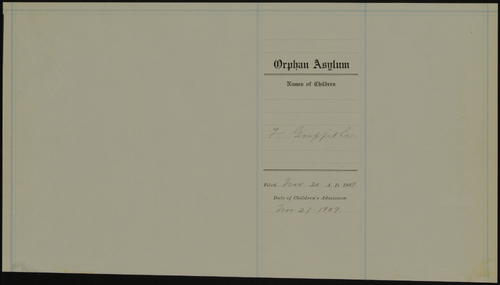 Orphan Asylum
Names of Children
Filed, Nov. 20 A. D. 1909
Date of Children's Admission
Nov. 21 1909